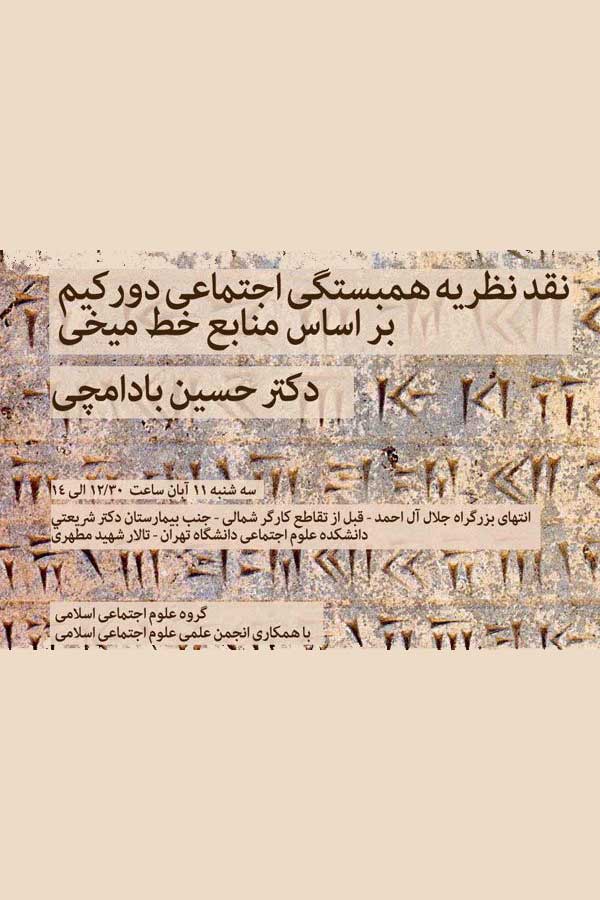 نقد نظریه همبستگی اجتماعی دورکیم
بر اساس منابع خط میخی
دکتر حسین بادامچی
سه شنبه ۱۱ آبان ساعت ۱۲/۳۰ الی ۱٤
انتهای بزرگراه جلال آل احمد - قبل از تقاطع کارگر شمالی - جنب بیمارستان دکتر شریعتي
دانشکده علوم اجتماعی دانشگاه تهران - تالار شهید مطهری
گروه علوم اجتماعی اسلامی
با همکاری انجمن علمی علوم اجتماعی اسلامی